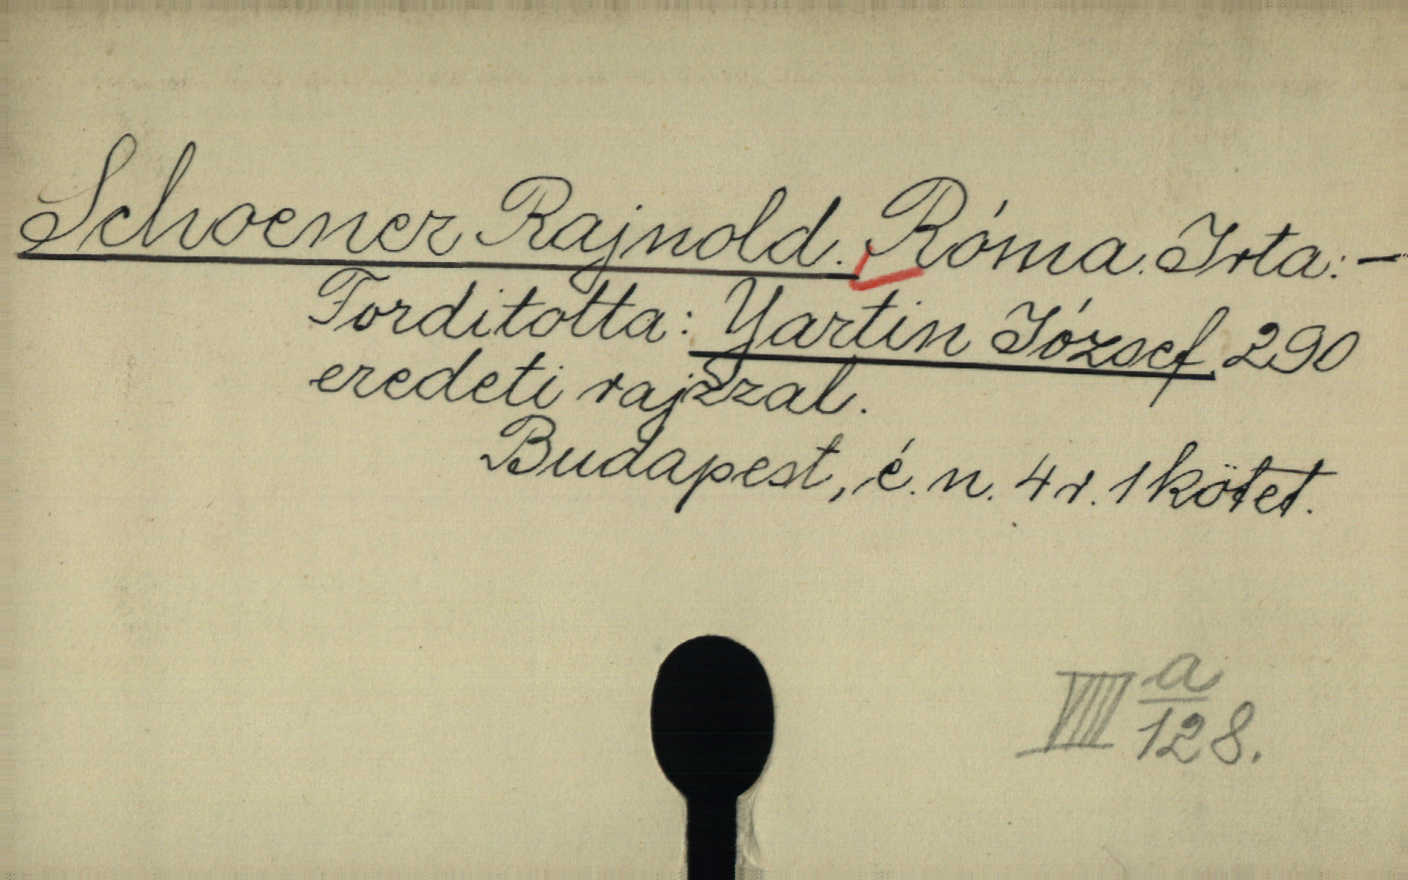 Schoener Rajnold. Róma. Irta: —
Forditotta: Yartin József. 290
eredeti rajzzal.
Budapest, é. n. 4r. 1 kötet.
VIII a/128.